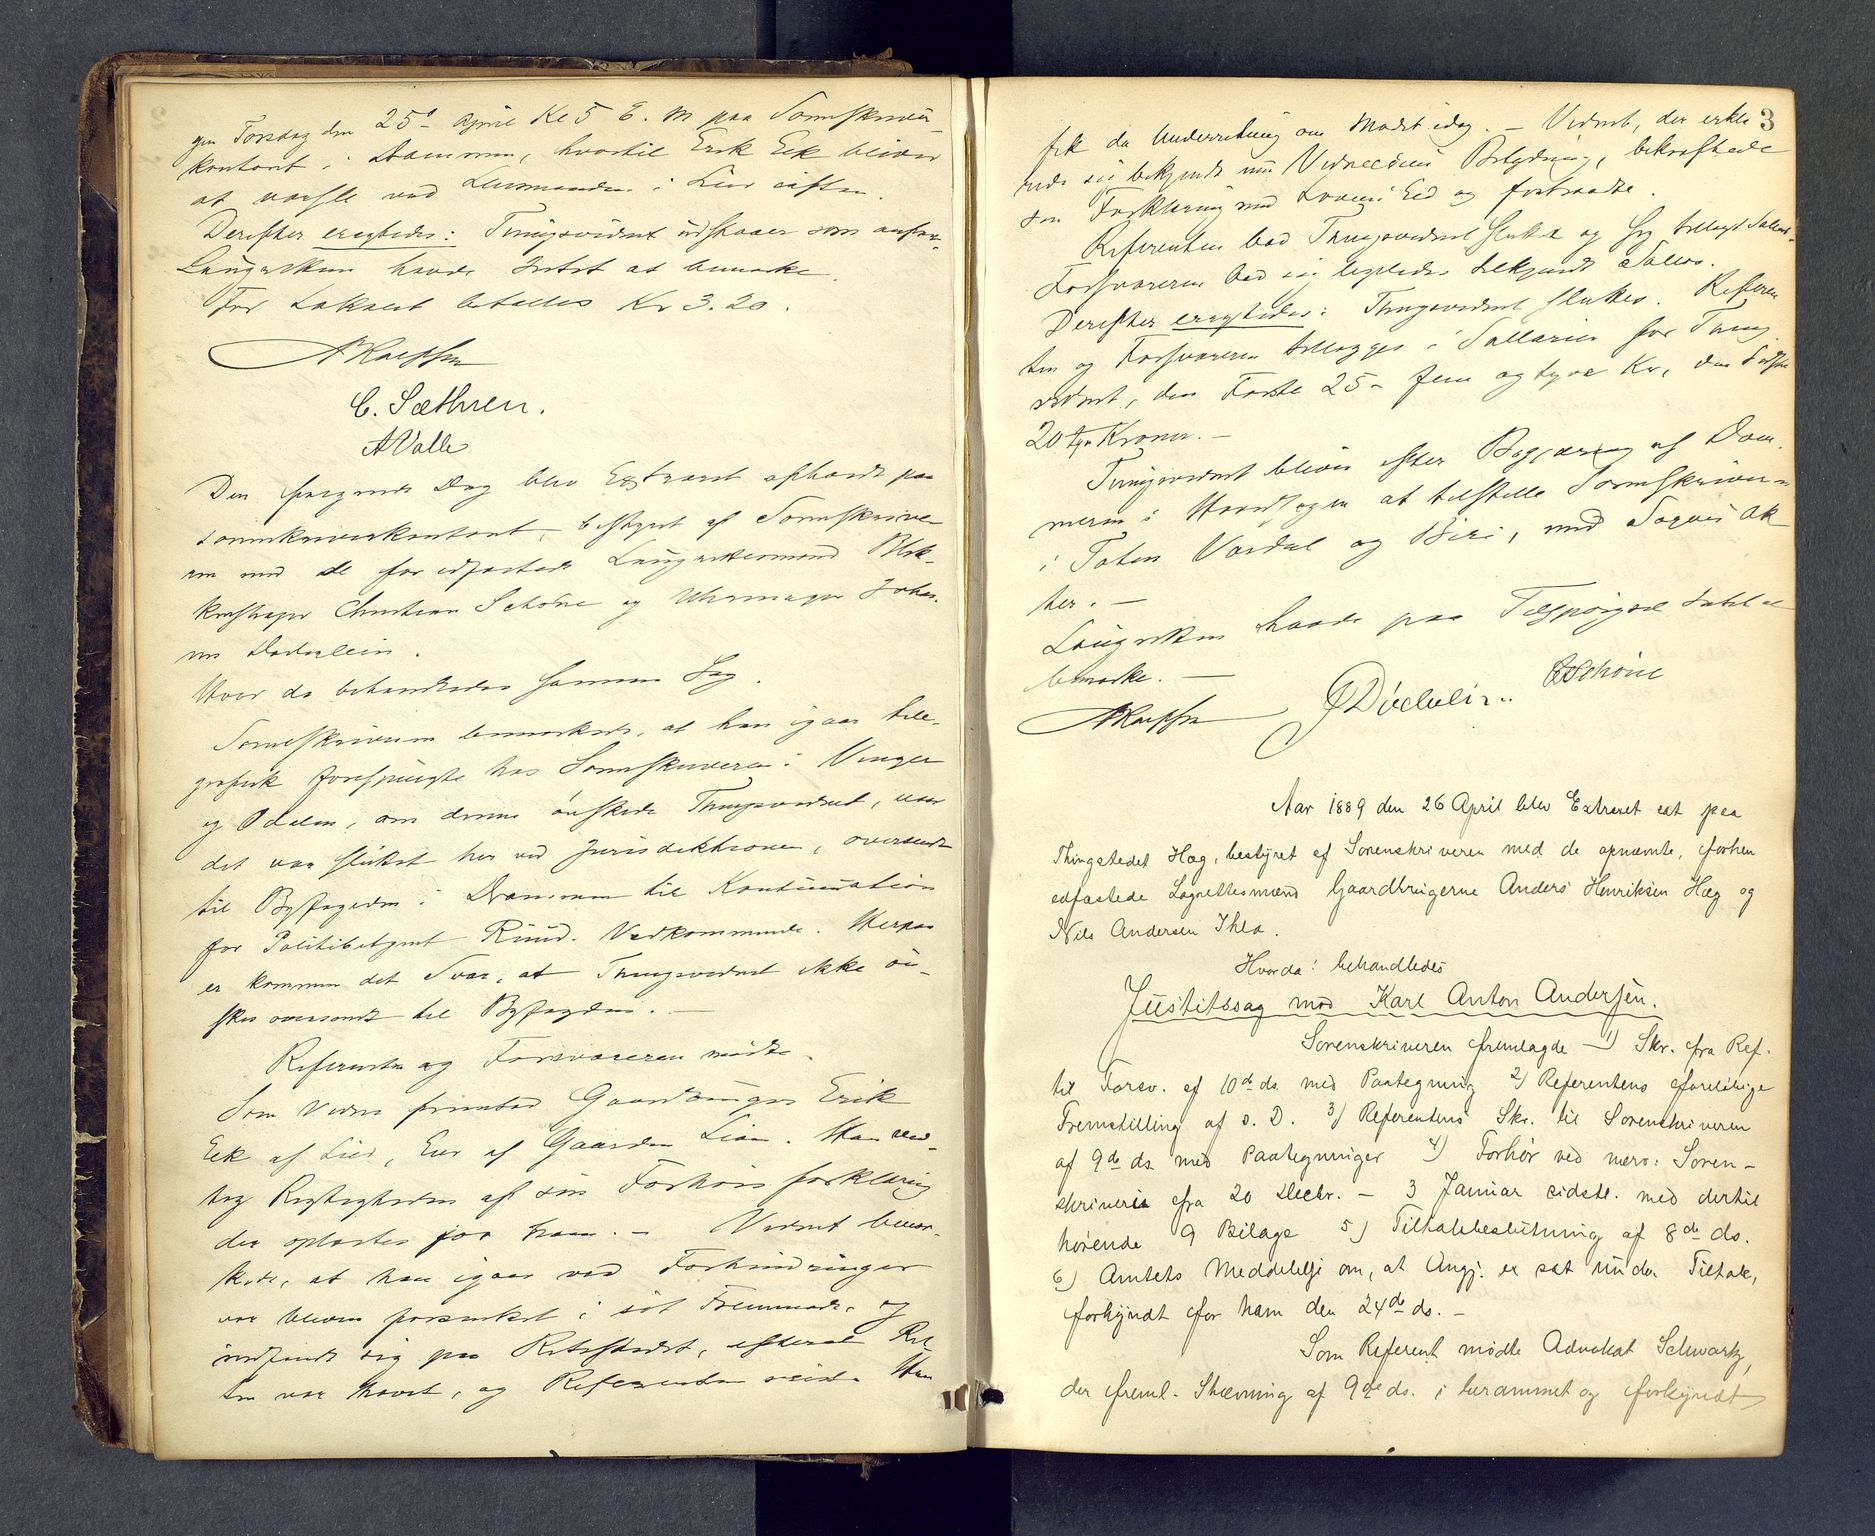 gen Torsdag den 25de April Kl 5 E. M paa Sorenskriver-
kontoret i Drammen, hvortil Erik Eek bliver
at varsle ved Lensmanden i Lier
Derefter eragtedes: Thingsvidnet udstaaer som anført.
Laugretten havde Intet at bemærke
For Lokalet betales Kr 3.20.
C. Sæthren.
A Valle
Den følgende Dag blev Extraret afholdt paa
Sorenskriverkontoret, bestyret af Sorenskrive-
ren med de for edfæstede Laugrettesmænd Blik-
kenslager Christian Schöne og Uhrmager Johan-
nes Döderlein.
Hvor da behandledes samme Sag.
Sorenskriveren bemærkede, at han igaar tele-
grafisk forespurgte hos Sorenskriveren i Vinger
og Odalen, om denne ønskede Thingsvidnet, naar
det var sluttet her ved Jurisdiktionen, oversendt
til Byfogden i Drammen til Kontinuation
for Politibetjent Ruud. Vedkommende. Herpaa
er kommen det Svar, at Thingsvidnet ikke øn-
skes oversendt til Byfogden. —
Referenten og Forsvareren mødte.
Som Vidne fremstod Gaardbruger Erik
Eek af Lier, Eier af Gaarden Lian. Han ved-
tog Rigtigheden af sin Forhørsforklaring
der oplæstes for ham. — Vidnet bemær-
kede, at han igaar ved Forhindringer
var bleven forsinket i sit Fremmøde og
indfandt sig paa Retsstedet, efterat Ret-
ten var hævet, og Referenten reist. Han
3
fik da Underretning om Mødet idag. — Vidnet, der erklæ-
rede sig bekjendt med Vidneedens Betydning, bekræftede
sin Forklaring med Lovens Ed og fratraadte.
Referenten bad Thingsvidnet sluttet og sig tillagt Sallar.
Forsvareren bad sig ligeledes tilkjendt Sallar.
Derefter eragtedes: Thingsvidnet sluttes. Referen
ten og Forsvareren tillægges i Sallarier for Thing
vidnet, den Første 25 — fem og tyve Kr, den Sidste
20 tyve Kroner. —
Thingsvidnet bliver efter Begjæring af Dom-
meren i Hovedsagen at tilstille Sorenskriveren
i Toten Vardal og Biri, med Sagens Ak
ter. —
Laugretten havde paa Tilspørgsel Intet at
bemærke. —
J Döderlein. C Schöne
Aar 1889 den 26 April blev Extraret sat paa
Thingstedet Hæg, bestyret af Sorenskriveren med de opnævnte, forhen
edfæstede Lagrettesmænd Gaardbrugerne Anders Henriksen Hæg og
Nils Andersen Thlo.
Hvorda: behandledes
Justitssag mod Karl Anton Andersen.
Sorenskriveren fremlagde — 1) Skr. fra Ref.
til Forsv. af 10de ds. med Paategning 2) Referentens foreløbige
Fremstilling af s. D. 3) Referentens Skr. til Sorenskriveren
af 9de ds. med Paategninger 4) Forhør ved nærv: Soren-
skriveri fra 20 Decbr. — 3 Januar sidstl. med dertil
hørende 9 Bilage 5) Tiltalebeslutning af 8de ds.
6) Amtets Meddelelse om, at Angj. er sat under Tiltale,
forkyndt for ham den 24de ds. —
Som Referent mødte Advokat Schwartz,
der freml. Stævning af 9de ds. i berammet og forkyndt